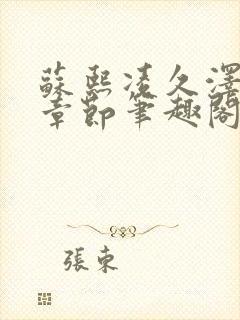 蘇熙凌久澤
章節筆趣閣
張束